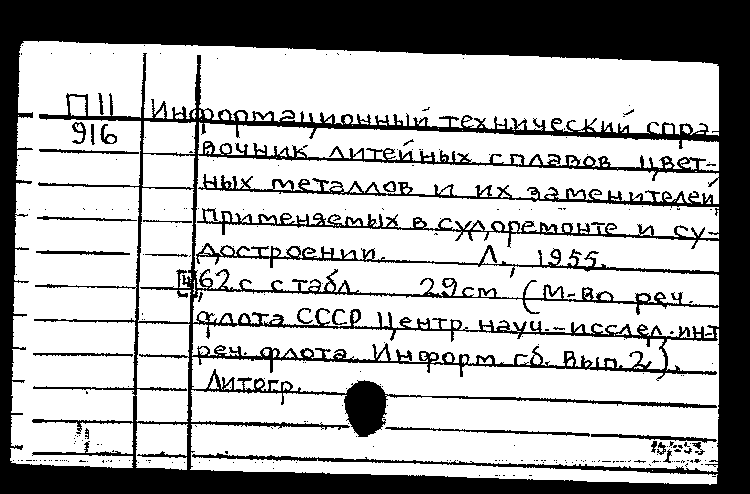 П11 Информационный технический спра-
916
вочник литейных сплавов цвет-
ных металлов и их заменителей
применяемых в судоремонте и су-
достроении. Л., 1955.
62 с с табл. 29 см (М-во реч.
флота СССР Центр. науч.-исслед. инт
реч. флота. Информ. сб. Вып. 2).
Литогр.